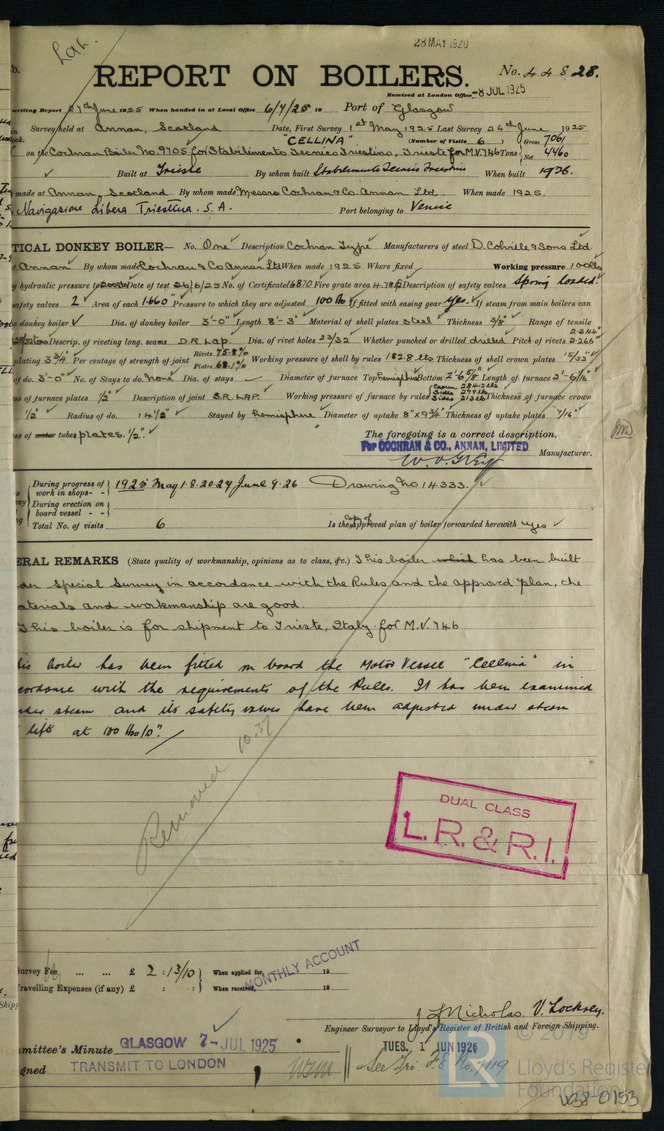 28 MAY 1926
Lat.
REPORT ON BOILERS.
No. 44828.
Received at London Office 8 JUL 1925
writing Report 1925 When handed in at Local Office 6/7/25 19 Port of Glasgow
Survey held at Annan, Scotland Date, First Survey 1st May 1925 Last Survey 26th June 1925
"CELLINA" (Number of Visits 6) Gross 7061
on the Cochran Boiler No. 9705 for Stabilimento Tecnico Triestino, Trieste for M.V. 746 Tons Net 4460
Built at Trieste By whom built Stabilimento Tecnico Triestino When built 1926.
made at Annan, Scotland By whom made Messrs Cochran & Co. Annan Ltd When made 1925.
Navigazione Libera Triestina. S.A. Port belonging to Venice
TICAL DONKEY BOILER— No. One Description Cochran Type Manufacturers of steel D. Colville & Sons Ltd
Annan By whom made Cochran & Co Annan Ltd When made 1925 Where fixed Working pressure 100 lbs
by hydraulic pressure to 200 lbs Date of test 26/6/25 No. of Certificate 16870 Fire grate area Description of safety valves Spring loaded
safety valves 2 Area of each 1.660" Pressure to which they are adjusted 100 lbs If fitted with easing gear yes. If steam from main boilers can
donkey boiler Dia. of donkey boiler 3'-0" Length 8'-3" Material of shell plates steel Thickness 3/8" Range of tensile
Descrip. of riveting long. seams D.R. Lap. Dia. of rivet holes 23/32 Whether punched or drilled drilled Pitch of rivets 2.266
plating 3 3/4" Per centage of strength of joint Rivets 75.8% Plates 68.1% Working pressure of shell by rules 182.8 lbs Thickness of shell crown plates 15/32"
of do. 3'-0" No. of Stays to do. None Dia. of stays Diameter of furnace Top Hemisphere Bottom 2'-6 5/8" Length of furnace 2'-6 1/16"
ss of furnace plates 1/2" Description of joint S.R. LAP. Working pressure of furnace by rules Thickness of furnace crown
1/2" Radius of do. 14 1/2" Stayed by Hemisphere Diameter of uptake 8" x 9 3/4" Thickness of uptake plates 7/16"
ss of water tubes plates. 1/2"
The foregoing is a correct description,
For COCHRAN & CO., ANNAN, LIMITED
Manufacturer.
During progress of work in shops - - 1925 May 1. 8. 20. 27 June 9. 26 Drawing No 14333.
During erection on board vessel - -
Total No. of visits 6 Is the copy of approved plan of boiler forwarded herewith yes
ERAL REMARKS (State quality of workmanship, opinions as to class, &c.) This boiler which has been built
der Special Survey in accordance with the Rules and the approved plan, the
aterials and workmanship are good.
This boiler is for shipment to Trieste, Italy for M.V. 746
his boiler has been fitted on board the Motor Vessel "Cellina" in
cordance with the requirements of the Rules. It has been examined
nder steam and its safety valves have been adjusted under steam
lift at 100 lbs/□".
Removed 10.37
DUAL CLASS
L.R. & R.I.
Survey Fee ... ... £ 2 : 13/10 When applied for, 19
MONTHLY ACCOUNT
Travelling Expenses (if any) £ : : When received, 19
J. Nicholas V. Lockney.
Engineer Surveyor to Lloyd's Register of British and Foreign Shipping.
© 2019
mmittee's Minute GLASGOW 7 - JUL 1925 TUES. 1 JUN 1926
gned TRANSMIT TO LONDON See Tri. F.E. No. 7119
LR
Lloyd's Register
Foundation
W38-0153